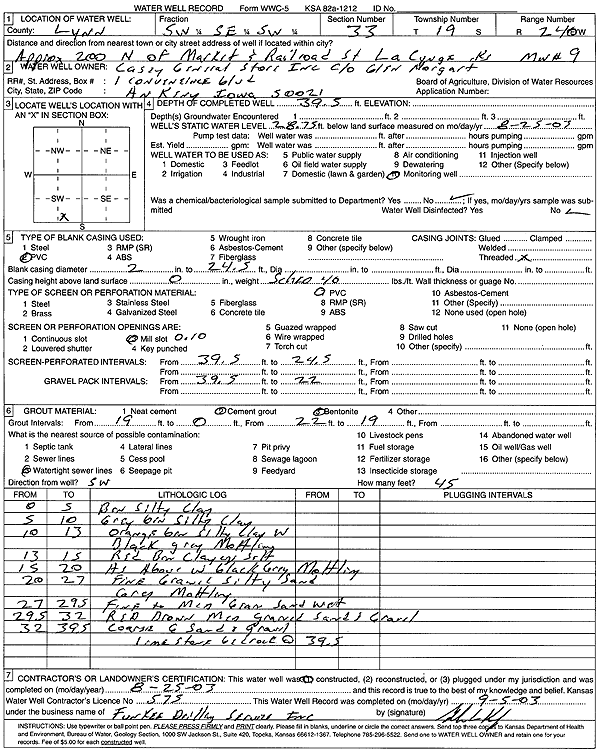 WATER WELL RECORD Form WWC-5 KSA 82a-1212 ID No.
1 LOCATION OF WATER WELL: Fraction Section Number Township Number Range Number
County: Lynn SW ¼ SE ¼ SW ¼ 33 T 19 S R 24 E/W
Distance and direction from nearest town or city street address of well if located within city?
Approx 200 N of Market & Railroad St La Cygne, Ks MW#9
2 WATER WELL OWNER: Casey General Stors Inc C/o Glen
RR#, St. Address, Box # : 1 Convenience Blvd Board of Agriculture, Division of Water Resources
City, State, ZIP Code : Ankeny Iowa 50021 Application Number:
3 LOCATE WELL'S LOCATION WITH AN "X" IN SECTION BOX:
N
NW NE
W E
SW SE
X
S
4 DEPTH OF COMPLETED WELL 39.5 ft. ELEVATION:
Depth(s) Groundwater Encountered 1 ft. 2 ft. 3 ft.
WELL'S STATIC WATER LEVEL 28.75 ft. below land surface measured on mo/day/yr 8-25-03
Pump test data: Well water was ft. after hours pumping gpm
Est. Yield gpm: Well water was ft. after hours pumping gpm
WELL WATER TO BE USED AS: 5 Public water supply 8 Air conditioning 11 Injection well
1 Domestic 3 Feedlot 6 Oil field water supply 9 Dewatering 12 Other (Specify below)
2 Irrigation 4 Industrial 7 Domestic (lawn & garden) 10 Monitoring well
Was a chemical/bacteriological sample submitted to Department? Yes No ✓; If yes, mo/day/yrs sample was submitted
Water Well Disinfected? Yes No ✓
5 TYPE OF BLANK CASING USED: 5 Wrought iron 8 Concrete tile CASING JOINTS: Glued Clamped
1 Steel 3 RMP (SR) 6 Asbestos-Cement 9 Other (specify below) Welded
2 PVC 4 ABS 7 Fiberglass Threaded X
Blank casing diameter 2 in. to 24.5 ft., Dia in. to ft., Dia in. to ft.
Casing height above land surface 0 in., weight Sch 40 lbs./ft. Wall thickness or guage No.
TYPE OF SCREEN OR PERFORATION MATERIAL: 7 PVC 10 Asbestos-Cement
1 Steel 3 Stainless Steel 5 Fiberglass 8 RMP (SR) 11 Other (Specify)
2 Brass 4 Galvanized Steel 6 Concrete tile 9 ABS 12 None used (open hole)
SCREEN OR PERFORATION OPENINGS ARE: 5 Guazed wrapped 8 Saw cut 11 None (open hole)
1 Continuous slot 3 Mill slot 0.10 6 Wire wrapped 9 Drilled holes
2 Louvered shutter 4 Key punched 7 Torch cut 10 Other (specify) ft.
SCREEN-PERFORATED INTERVALS: From 39.5 ft. to 24.5 ft., From ft. to ft.
From ft. to ft., From ft. to ft.
GRAVEL PACK INTERVALS: From 39.5 ft. to 22 ft., From ft. to ft.
From ft. to ft., From ft. to ft.
6 GROUT MATERIAL: 1 Neat cement 2 Cement grout 3 Bentonite 4 Other
Grout Intervals: From 19 ft. to 0 ft., From 22 ft. to 19 ft., From ft. to ft.
What is the nearest source of possible contamination: 10 Livestock pens 14 Abandoned water well
1 Septic tank 4 Lateral lines 7 Pit privy 11 Fuel storage 15 Oil well/Gas well
2 Sewer lines 5 Cess pool 8 Sewage lagoon 12 Fertilizer storage 16 Other (specify below)
3 Watertight sewer lines 6 Seepage pit 9 Feedyard 13 Insecticide storage
Direction from well? SW How many feet? 45
FROM TO LITHOLOGIC LOG FROM TO PLUGGING INTERVALS
0 5 Brn Silty Clay
5 10 Grey brn Silty Clay
10 13 Orange brn Silty Clay W
Black grey Mottling
13 15 Red Brn Clayey Silt
15 20 As Above w Black Grey Mottling
20 27 Fine Gravel Silty Sand
Grey Mottling
27 29.5 Fine to Med Gran Sand Wet
29.5 32 Red Brown Med Graned Sand & Gravel
32 39.5 Coarse G Sand & Gravel
Limestone Bedrock @ 39.5
7 CONTRACTOR'S OR LANDOWNER'S CERTIFICATION: This water well was (1) constructed, (2) reconstructed, or (3) plugged under my jurisdiction and was
completed on (mo/day/year) 8-25-03 and this record is true to the best of my knowledge and belief. Kansas
Water Well Contractor's Licence No 575 This Water Well Record was completed on (mo/day/yr) 9-5-03
under the business name of Funkee Drilling Service Inc by (signature)
INSTRUCTIONS: Use typewriter or ball point pen. PLEASE PRESS FIRMLY and PRINT clearly. Please fill in blanks, underline or circle the correct answers. Send top three copies to Kansas Department of Health
and Environment, Bureau of Water, Geology Section, 1000 SW Jackson St., Suite 420, Topeka, Kansas 66612-1367. Telephone 785-296-5522. Send one to WATER WELL OWNER and retain one for your
records. Fee of $5.00 for each constructed well.